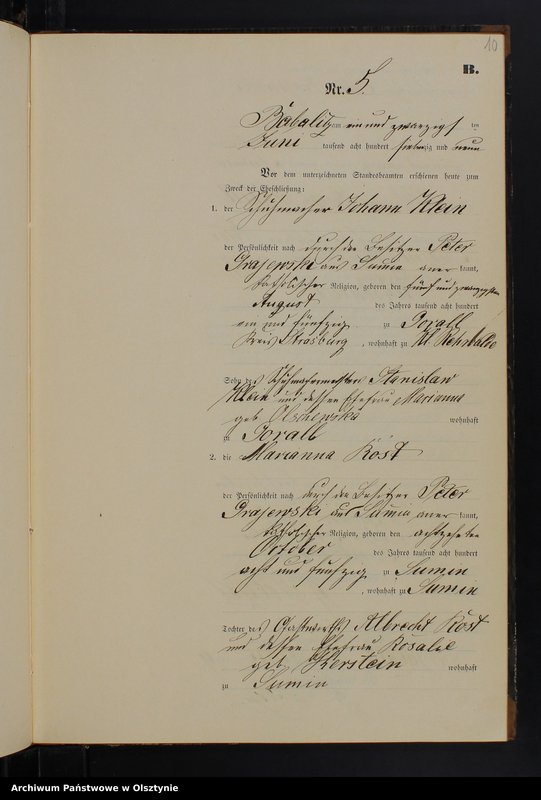 10
B.
Nr. 5.
Babalitz am ein und zwanzigs ten
Juni tausend acht hundert siebenzig und neun
Vor dem unterzeichneten Standesbeamten erschienen heute zum
Zweck der Eheschließung:
1. der Schuhmacher Johann Klein
der Persönlichkeit nach durch den Besitzer Peter
Grajewski aus Sumin aner kannt,
katholischer Religion, geboren den fünf und zwanzigsten
August des Jahres tausend acht hundert
ein und fünfzig zu Gorall
Kreis Strasburg, wohnhaft zu Kl. Rehwalde
Sohn des Schuhmachermeisters Stanislaw
Klein und dessen Ehefrau Marianna
geb. Olszewska wohnhaft
zu Gorall
2. die Marianna Kost
der Persönlichkeit nach durch den Besitzer Peter
Grajewski aus Sumin aner kannt,
katholischer Religion, geboren den achtzehnten
October des Jahres tausend acht hundert
acht und fünfzig zu Sumin
, wohnhaft zu Sumin
Tochter des Gastwirths Albrecht Kost
und dessen Ehefrau Rosalie
geb. Kerstein wohnhaft
zu Sumin
Archiwum Państwowe w Olsztynie